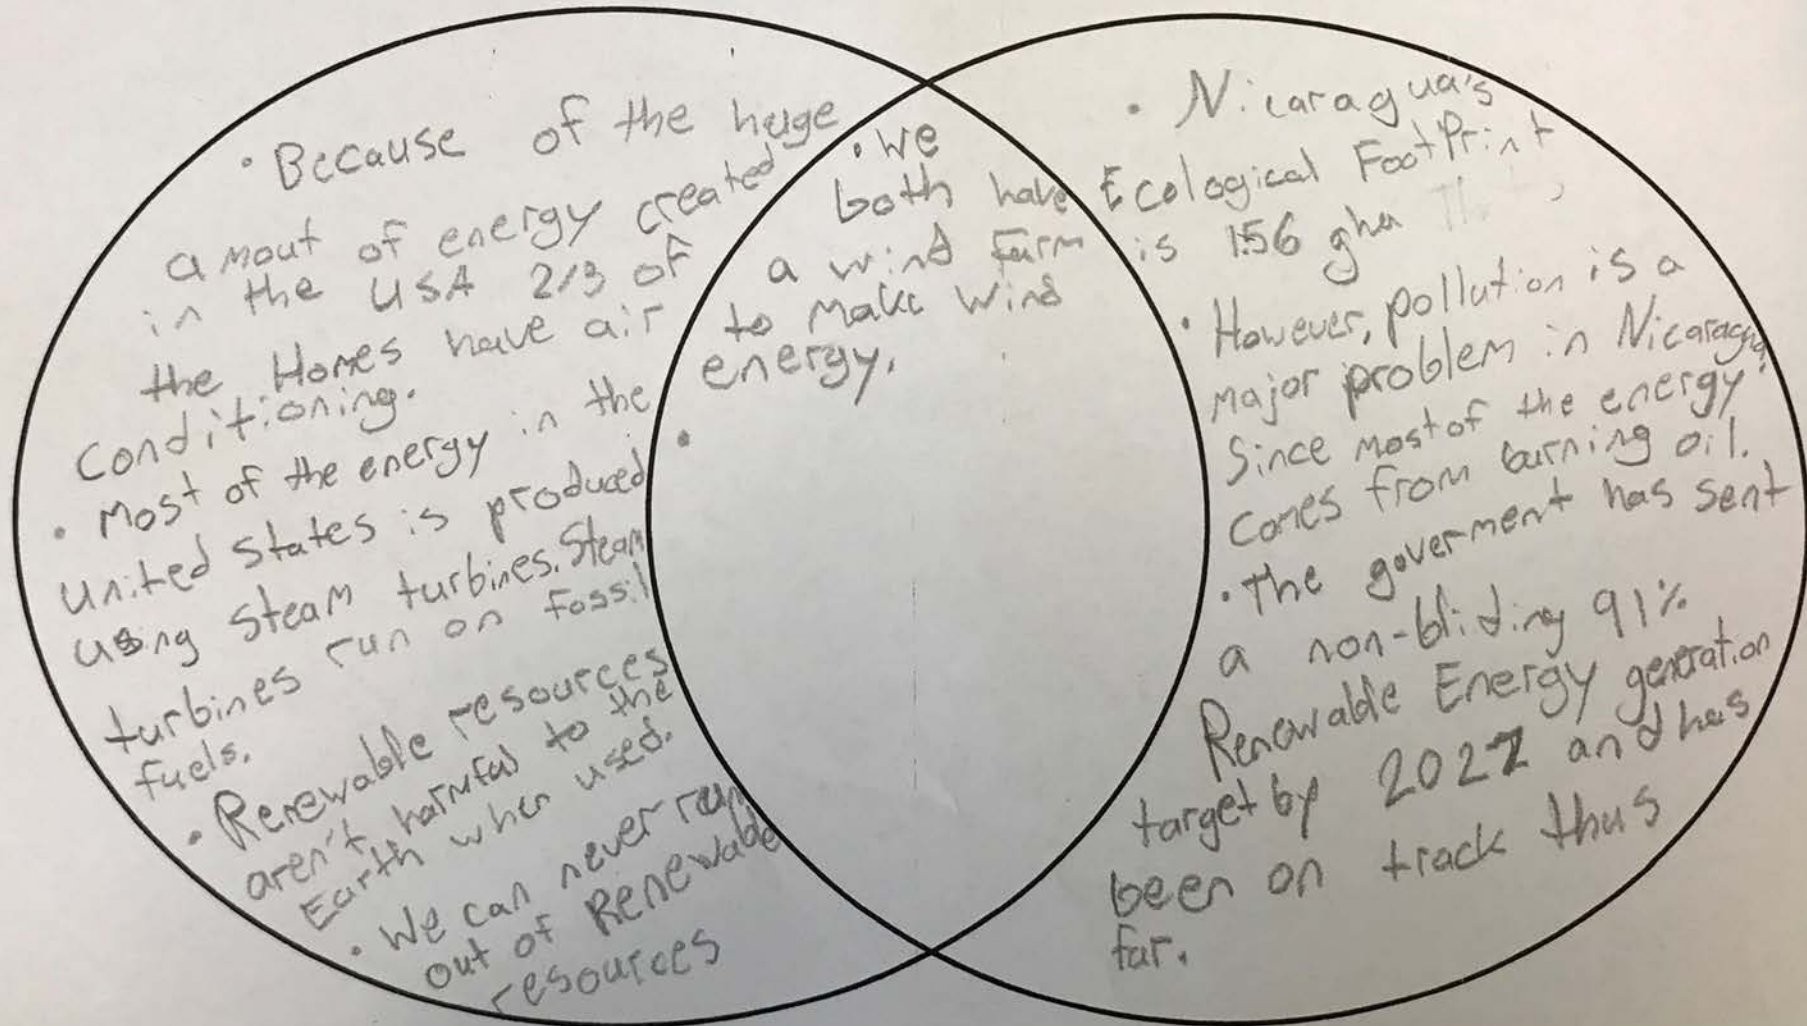 • Because of the huge
amout of energy created
in the USA 2/3 of
the Homes have air
conditioning.
• Most of the energy in the
United States is produced
using steam turbines. Steam
turbines run on fossil
fuels.
• Renewable resources
aren't harmful to the
Earth when used.
• We can never run
out of Renewable
resources
• we
both have
a wind farm
to make wind
energy.
•
• Nicaragua's
Ecological FootPrint
is 1.56 gha
• However, pollution is a
major problem in Nicaragua,
Since most of the energy
comes from burning oil.
• The goverment has sent
a non-bliding 91%
Renewable Energy generation
target by 2027 and has
been on track thus
far.